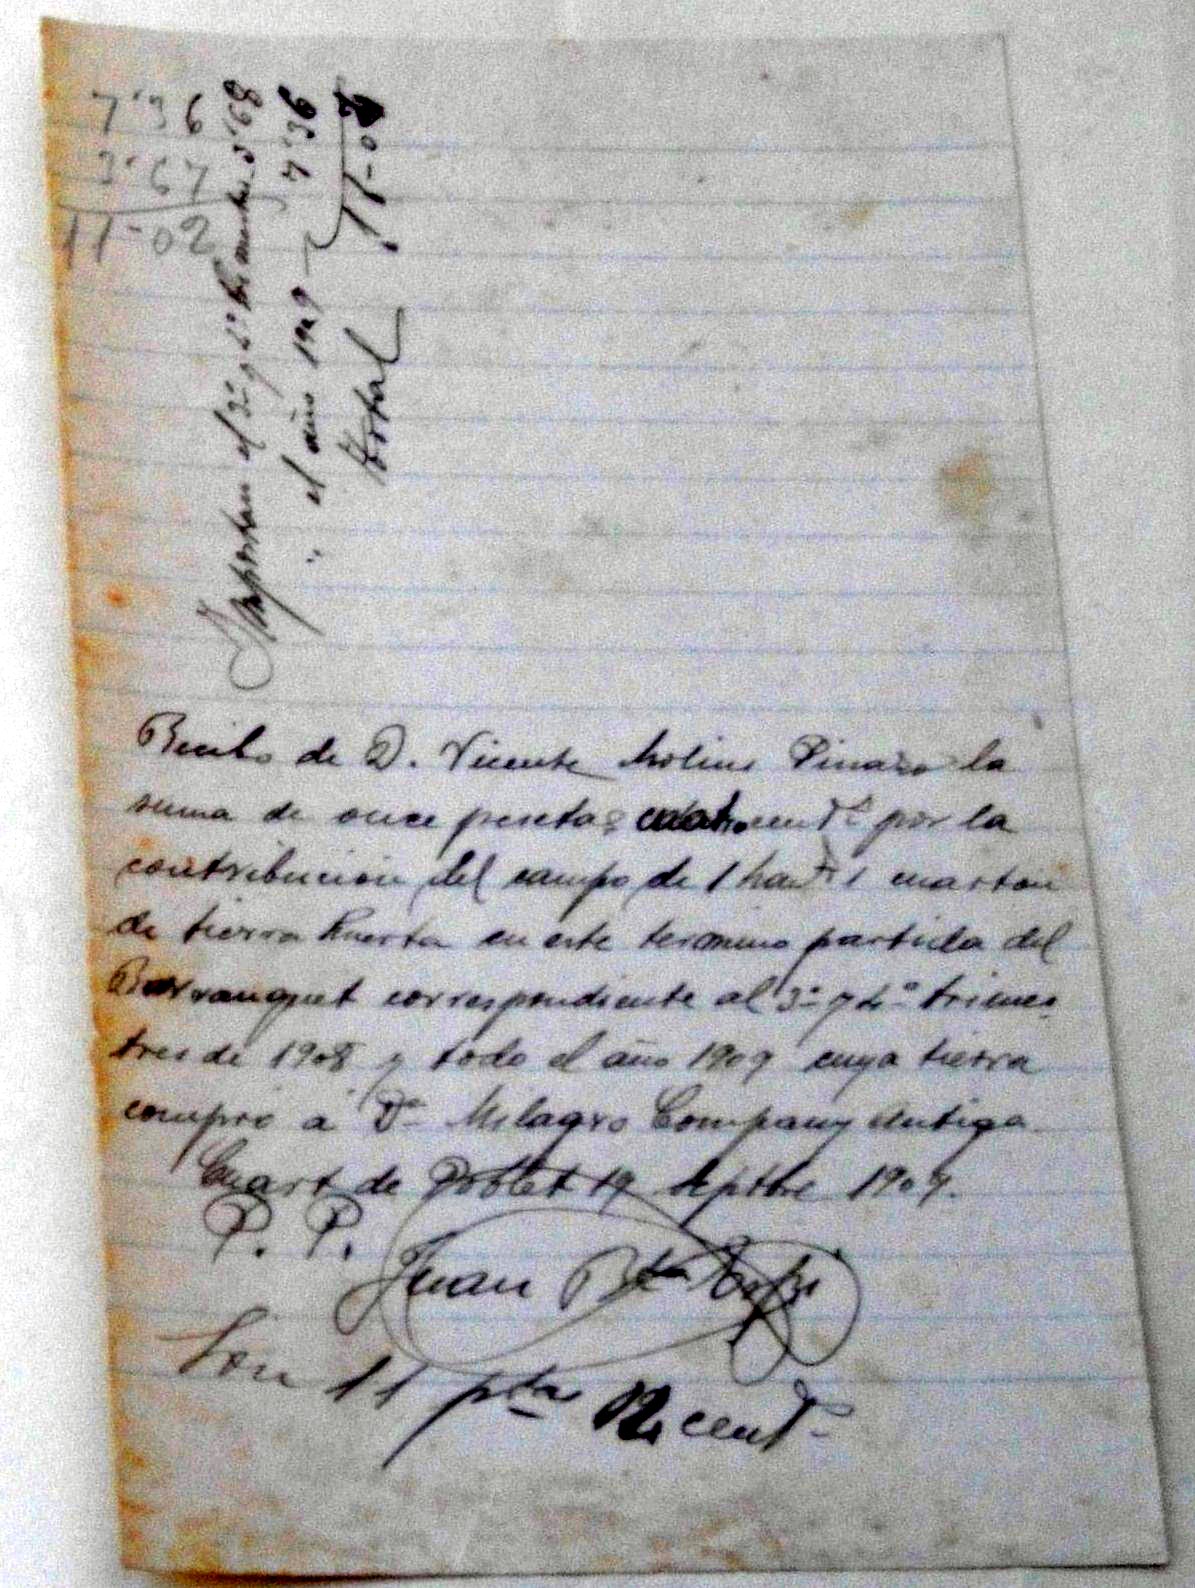 7'36
3'67
11-02
Importan el 3º y 4º trimestres 3'68
" el año 1909 — 7'36
Total 11-04
Recibo de D. Vicente Molins Pinazo la
suma de once pesetas cuatro centˢ por la
contribucion del campo de 1 han 1 cuarton
de tierra huerta en este termino partida del
Barranquet correspondiente al 3º y 4º trimes-
tres de 1908 y todo el año 1909 cuya tierra
compró a Dª Milagro Company Antiga
Cuart de Poblet 19 Septbre 1909.
P. P.
Juan Bta
Son 11 ptas cent